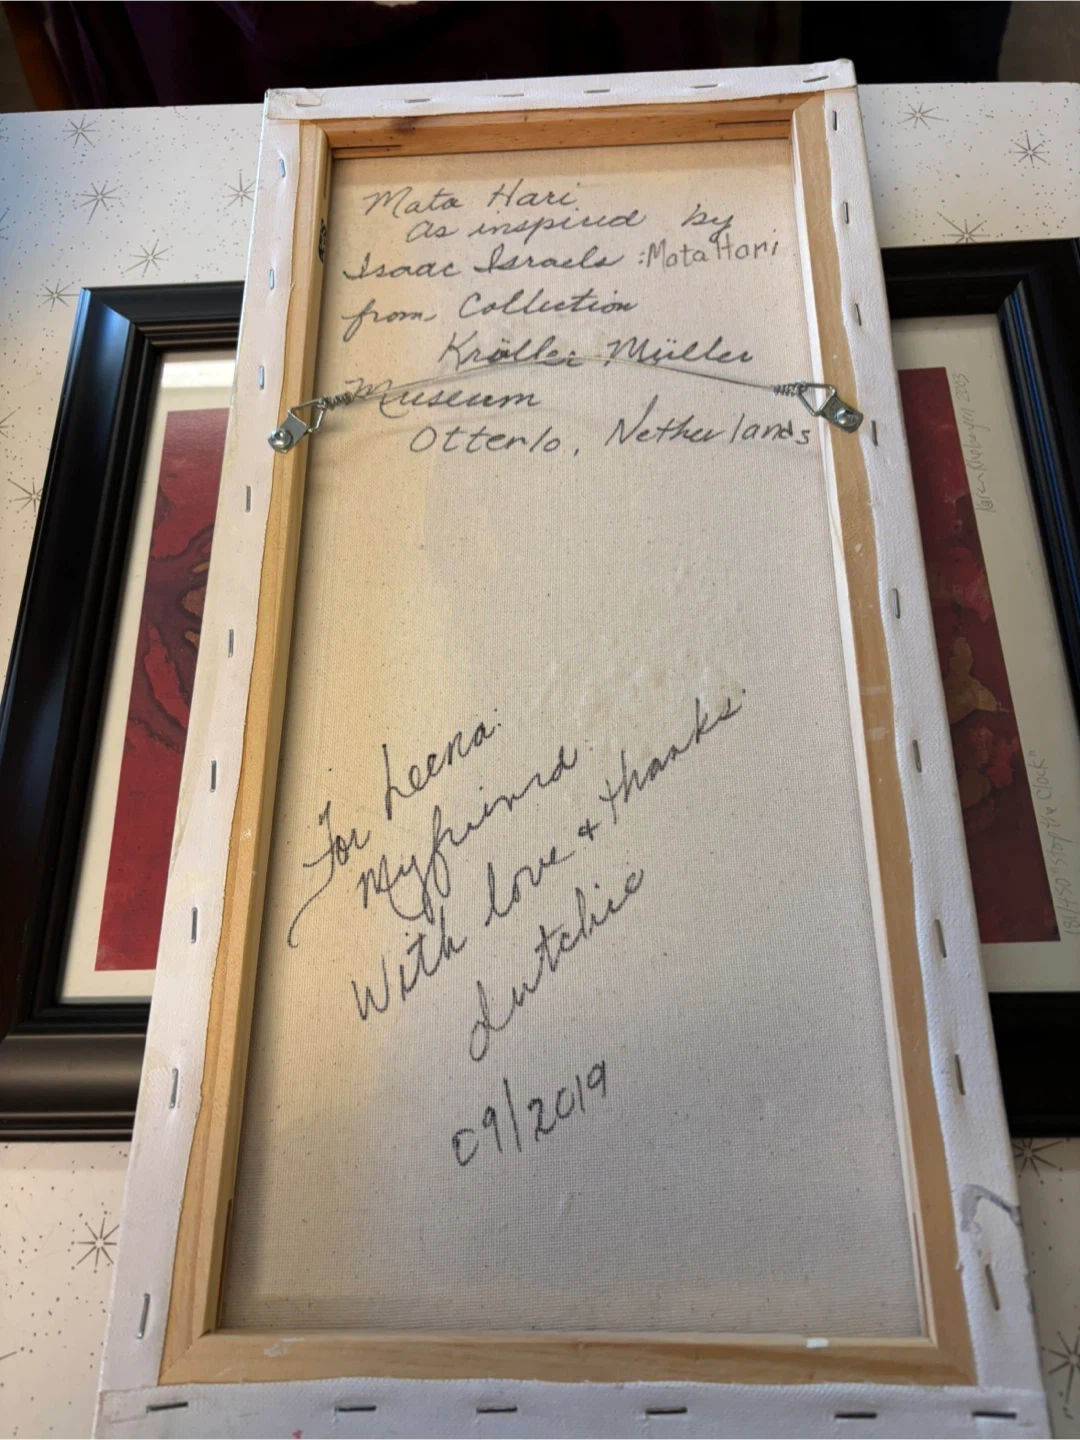 Mata Hari
as inspired by
Isaac Israels : Mata Hari
from Collection
Kröller Müller
Museum
Otterlo, Netherlands
For Leena:
My friend:
With love + thanks
dutchie
09/2019
2003
181/450 "Stop the Clock"